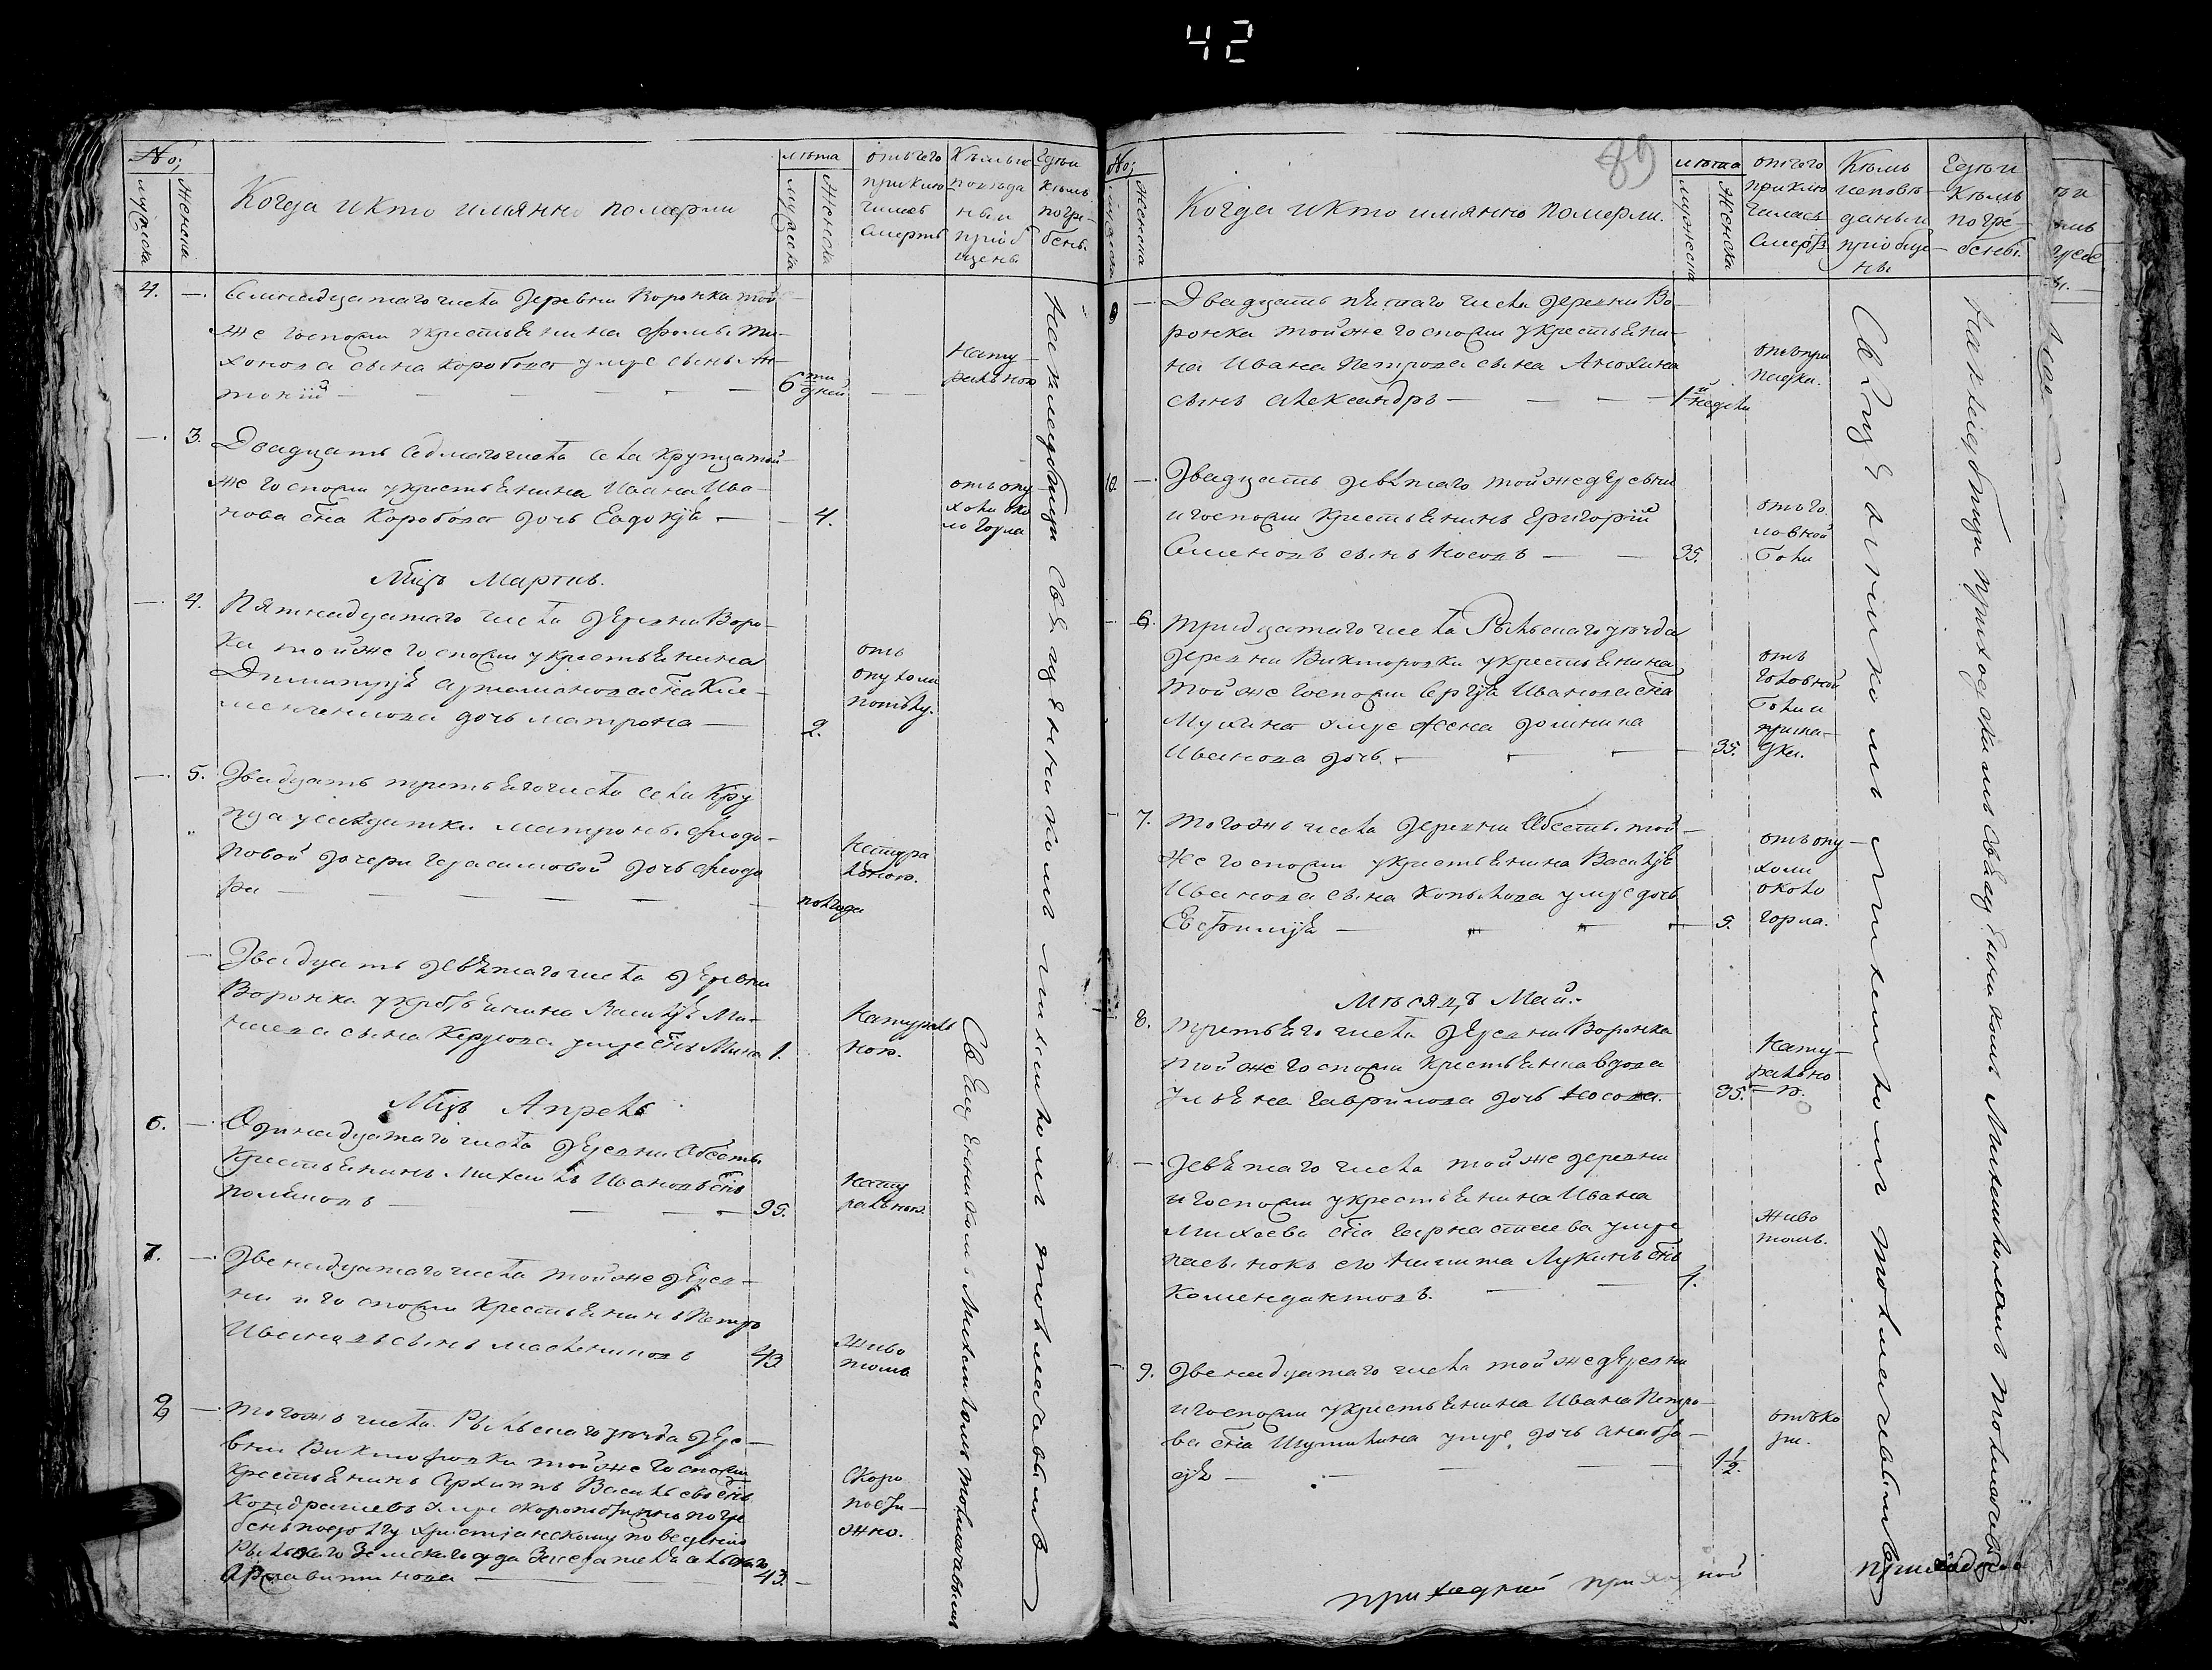 42
No;
мужеска
женска
Когда и кто имянно померли
лѣта
мужеска
женска
отъ чего
приклю
чилась
смерть
Кѣмъ ис
повѣда
ны и
пріоб
щены
Где и
кѣмъ
погре-
бены.
4.
Семнадцатаго числа деревни Воронка той
же госпожи у крестьянина Фомы Ти-
хонова сына Коробова умре сынъ Ан-
тоній
6ти дней
Нату
рально
3.
Двадцать седмаго числа села Крупца той
же госпожи у крестьянина Ивана Ива-
нова сна Коробова дочь Евдокія
4.
отъ опу
холи око
ло горла
Мцъ Мартъ.
4.
Пятнадцатаго числа деревни Воро-
ка той же госпожи у крестьянина
Димитрія Артамонова сна Кле-
менченкова дочь Матрона
2.
отъ
опухоли
5.
Двадцать третьяго числа села Кру
пца у салдатки Матроны Фиодо-
ровой дочери Герасимовой дочь Фиодо
ра
полгода
Натура
льною.
Двадцать девятаго числа деревни
Воронка у крестьянина Василія Ми-
наева сына умре снъ Мина
1.
Натураль
ною.
Мцъ Апрель
6.
Одинадцатаго числа деревни Обесты
крестьянинъ Михаилъ Ивановъ снъ
Поляковъ
95.
Нату
ральною.
7.
Двенадцатаго числа той же дерев-
ни и госпожи крестьянинъ Петръ
Ивановъ сынъ Масленниковъ
43
Живо
томъ
8
Того жъ числа Рыльскаго уезда дере-
вни Викторовки той же госпожи
крестьянинъ Архиппъ Васильевъ снъ
Кондрашевъ умре скоропостижно погре
бенъ по долгу христіанскому по веденію
Рыльскаго Земскаго суда Заседателя
43.
Скоро
пости-
жно.
Священникомъ Михаиломъ Толмачевымъ
На кладбищи священникомъ Михаиломъ Толмачевымъ
89
No;
женска
Когда и кто имянно померли.
лѣта
мужеска
женска
отчего
приклю
чилась
смерть
Кѣмъ
исповѣ
даны и
пріобще
ны
Где и
кѣмъ
погре-
бены.
9
Двадцать пятаго числа деревни Во-
ронка той же госпожи у крестьяни-
на Ивана Петрова сына Анохина
сынъ Александръ
1й недели
отъ при
падка.
10
Двадцать девятаго той же деревни
и госпожи крестьянинъ Григорій
Семеновъ сынъ Носовъ
35.
от го
ловной
боли
6.
Тридцатаго числа Рыльскаго уезда
деревни Викторовки у крестьянина
той же госпожи Сергія Иванова сна
Мухина умре жена Домникиа
Иванова дочь
35.
отъ
головной
боли и
припа-
дка.
7.
Того жъ числа деревни Обесты той-
же госпожи у крестьянина Василія
Иванова сына Копылова умре дочь
Евфимія
5.
отъ опу-
холи
около
горла.
Мѣсяцъ Май.
8.
Третьяго числа деревни Воронка
той же госпожи крестьянка вдова
Ульяна Гаврилова дочь Носова
35.
Нату-
рально
-ю.
Девятаго числа той же деревни
и госпожи у крестьянина Ивана
Михеева сна умре
пасынокъ его Никита Лукинъ снъ
Комендантовъ.
4.
Живо
томъ.
9.
Двенадцатаго числа той же деревни
и госпожи у крестьянина Ивана Петро-
ва сна Шумилина умре дочь Анаста-
сія
1 1/2.
Священникомъ Михаиломъ Толмачевымъ
На кладбищи приходскимъ Священникомъ Михаиломъ Толмачевымъ